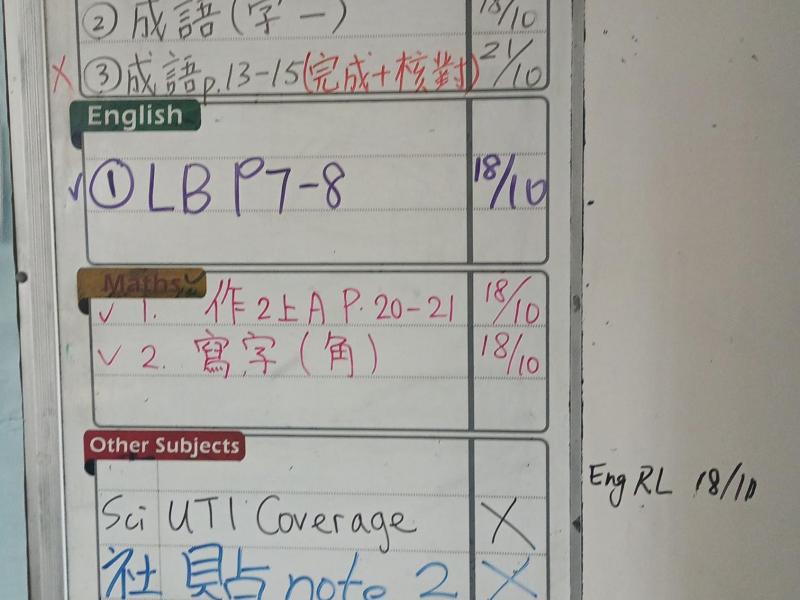 ② 成語(字一) 18/10
✗ ③成語p.13-15(完成+核對) 21/10
English
✓ ① LB P7-8 18/10
Maths
✓ 1. 作2上A P.20-21 18/10
✓ 2. 寫字(角) 18/10
Other Subjects
Sci UT1 Coverage ✗
Eng RL 18/10
社 貼 note 2 ✗